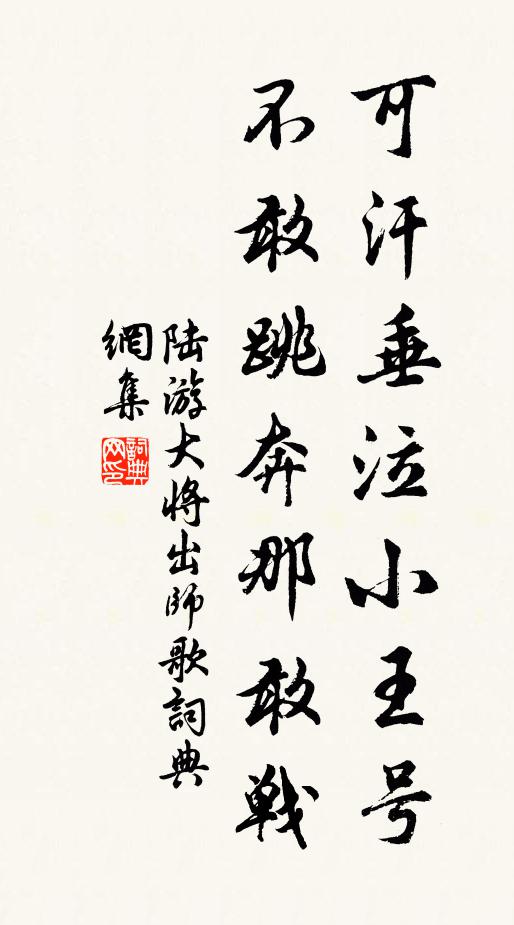 可汗垂泣小王号
不敢跳奔那敢戦
陆游大将出师歌詞典
網集
詞典网印